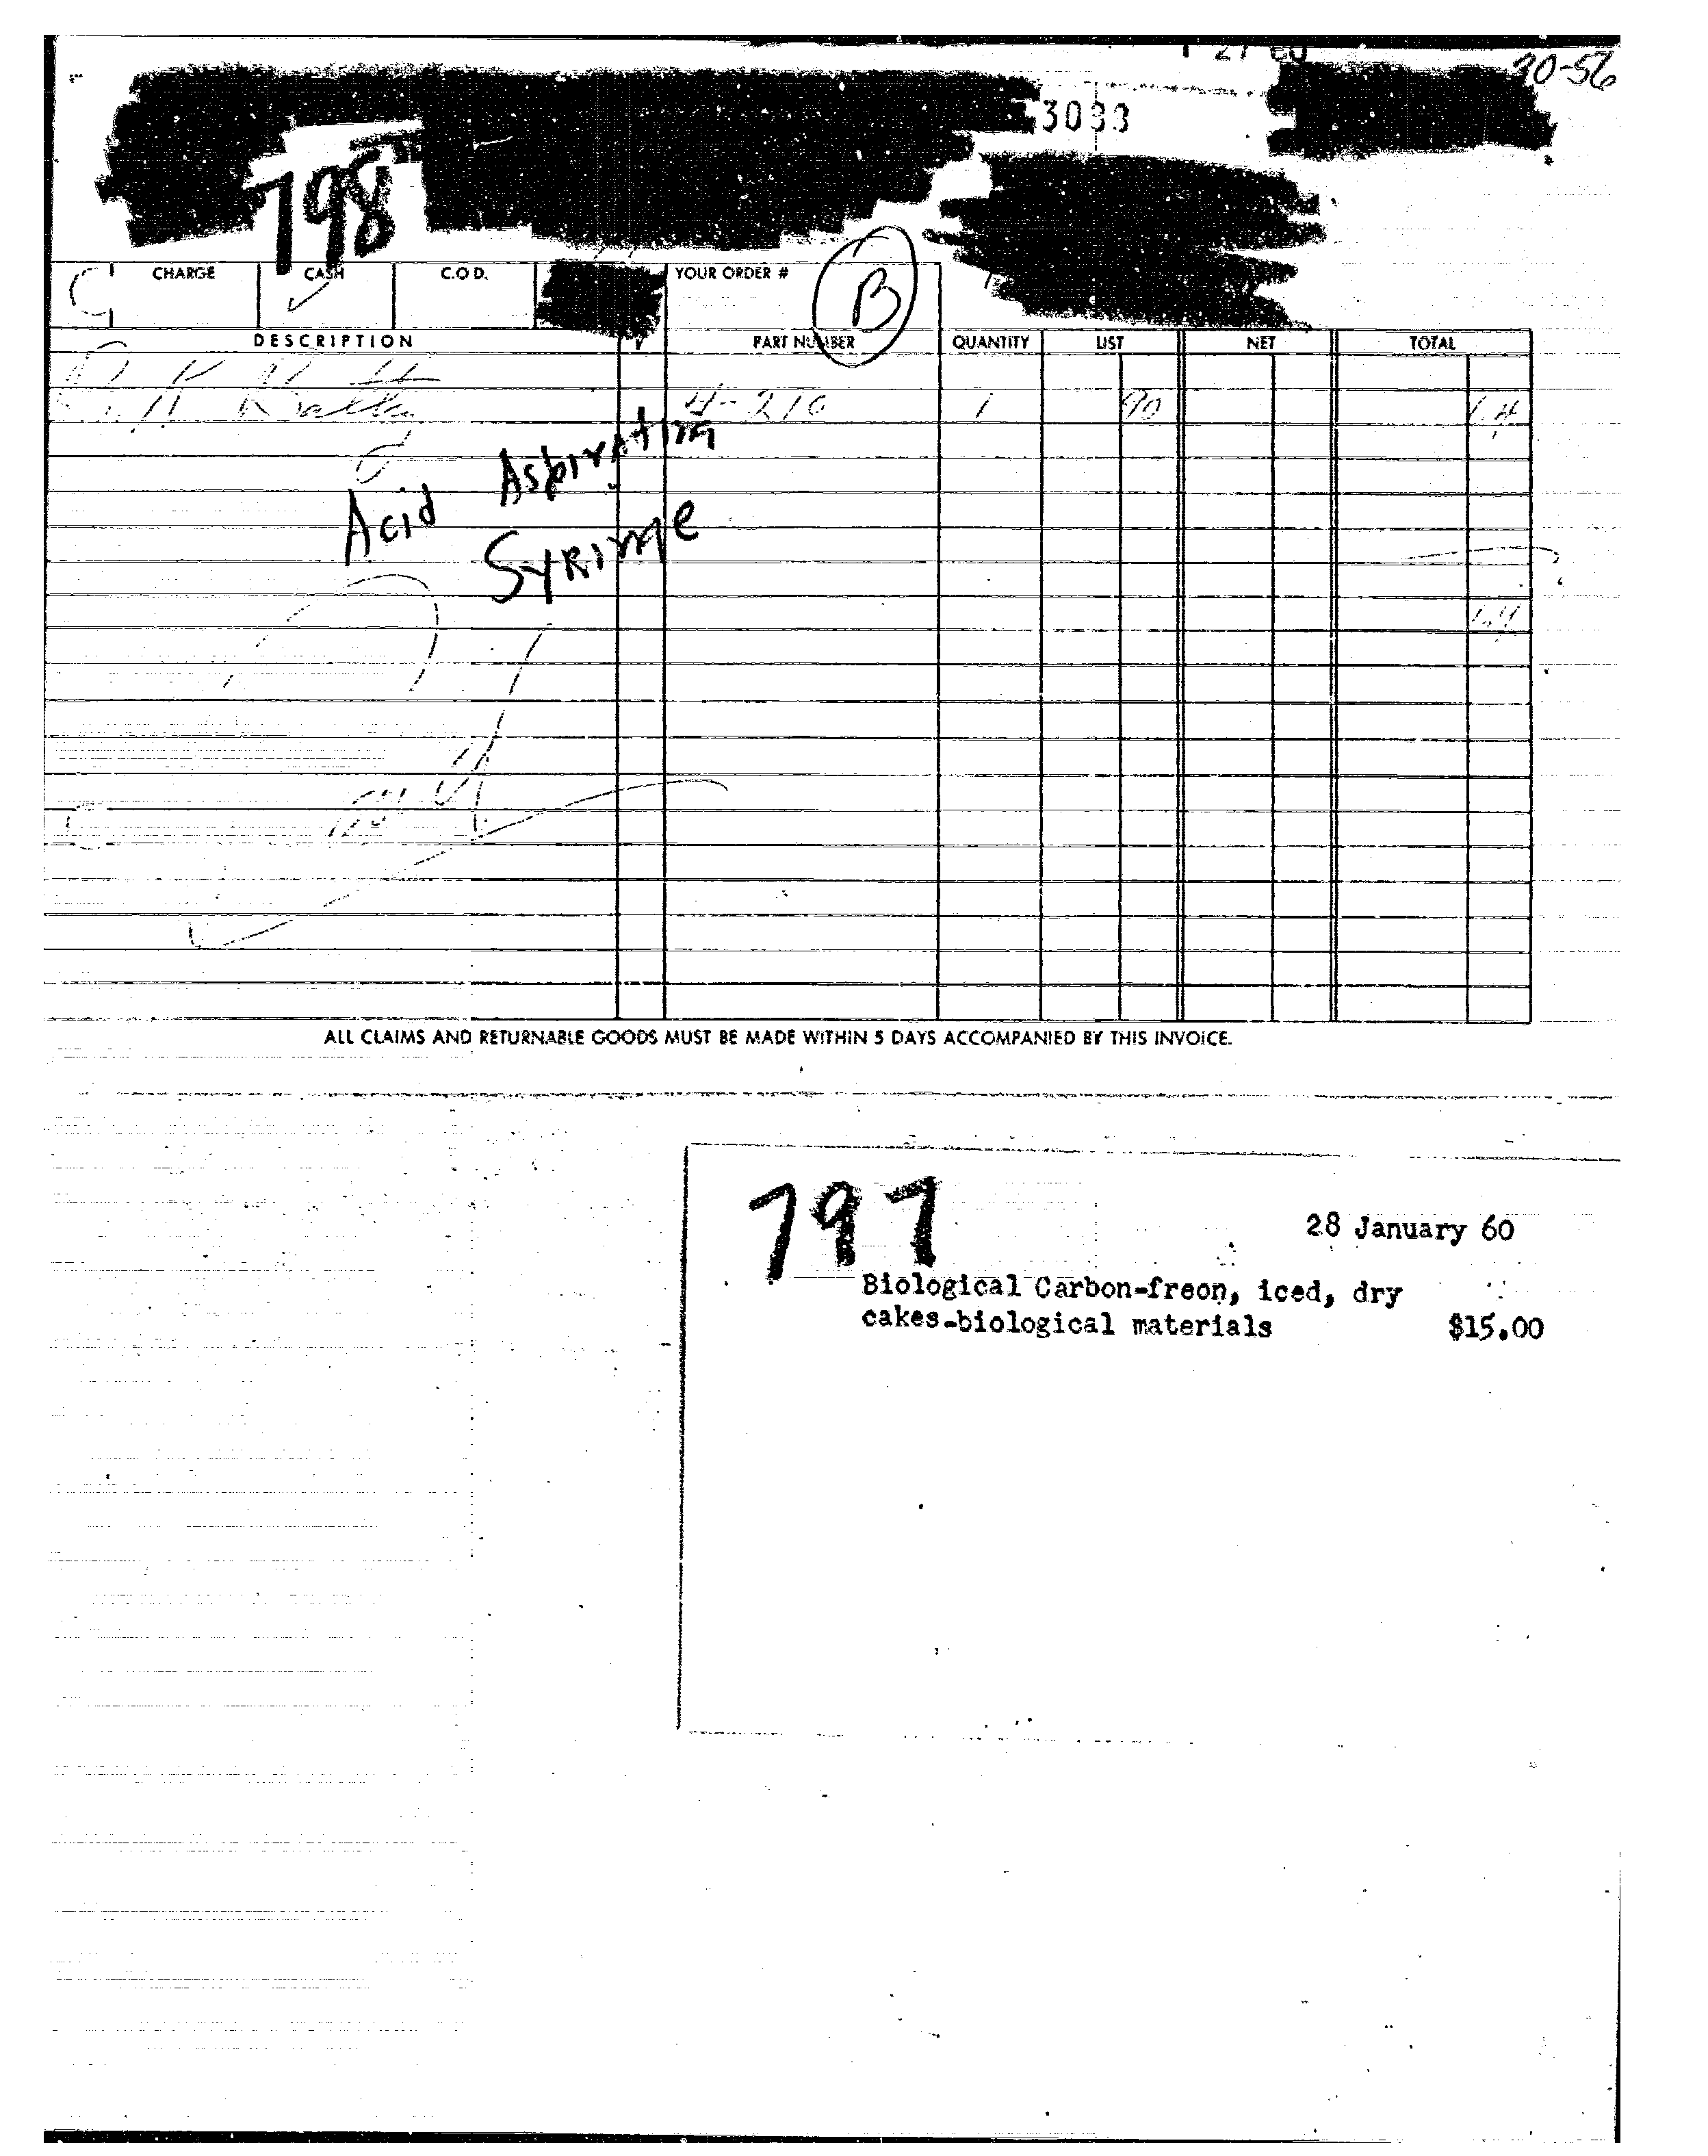 90-56
3083
798
CHARGE CASH C.O.D. YOUR ORDER #
B
DESCRIPTION PART NUMBER QUANTITY LIST NET TOTAL
4-210 1 90
Acid Aspirating
Syringe
ALL CLAIMS AND RETURNABLE GOODS MUST BE MADE WITHIN 5 DAYS ACCOMPANIED BY THIS INVOICE.
797
28 January 60
Biological Carbon-freon, iced, dry
cakes-biological materials $15.00